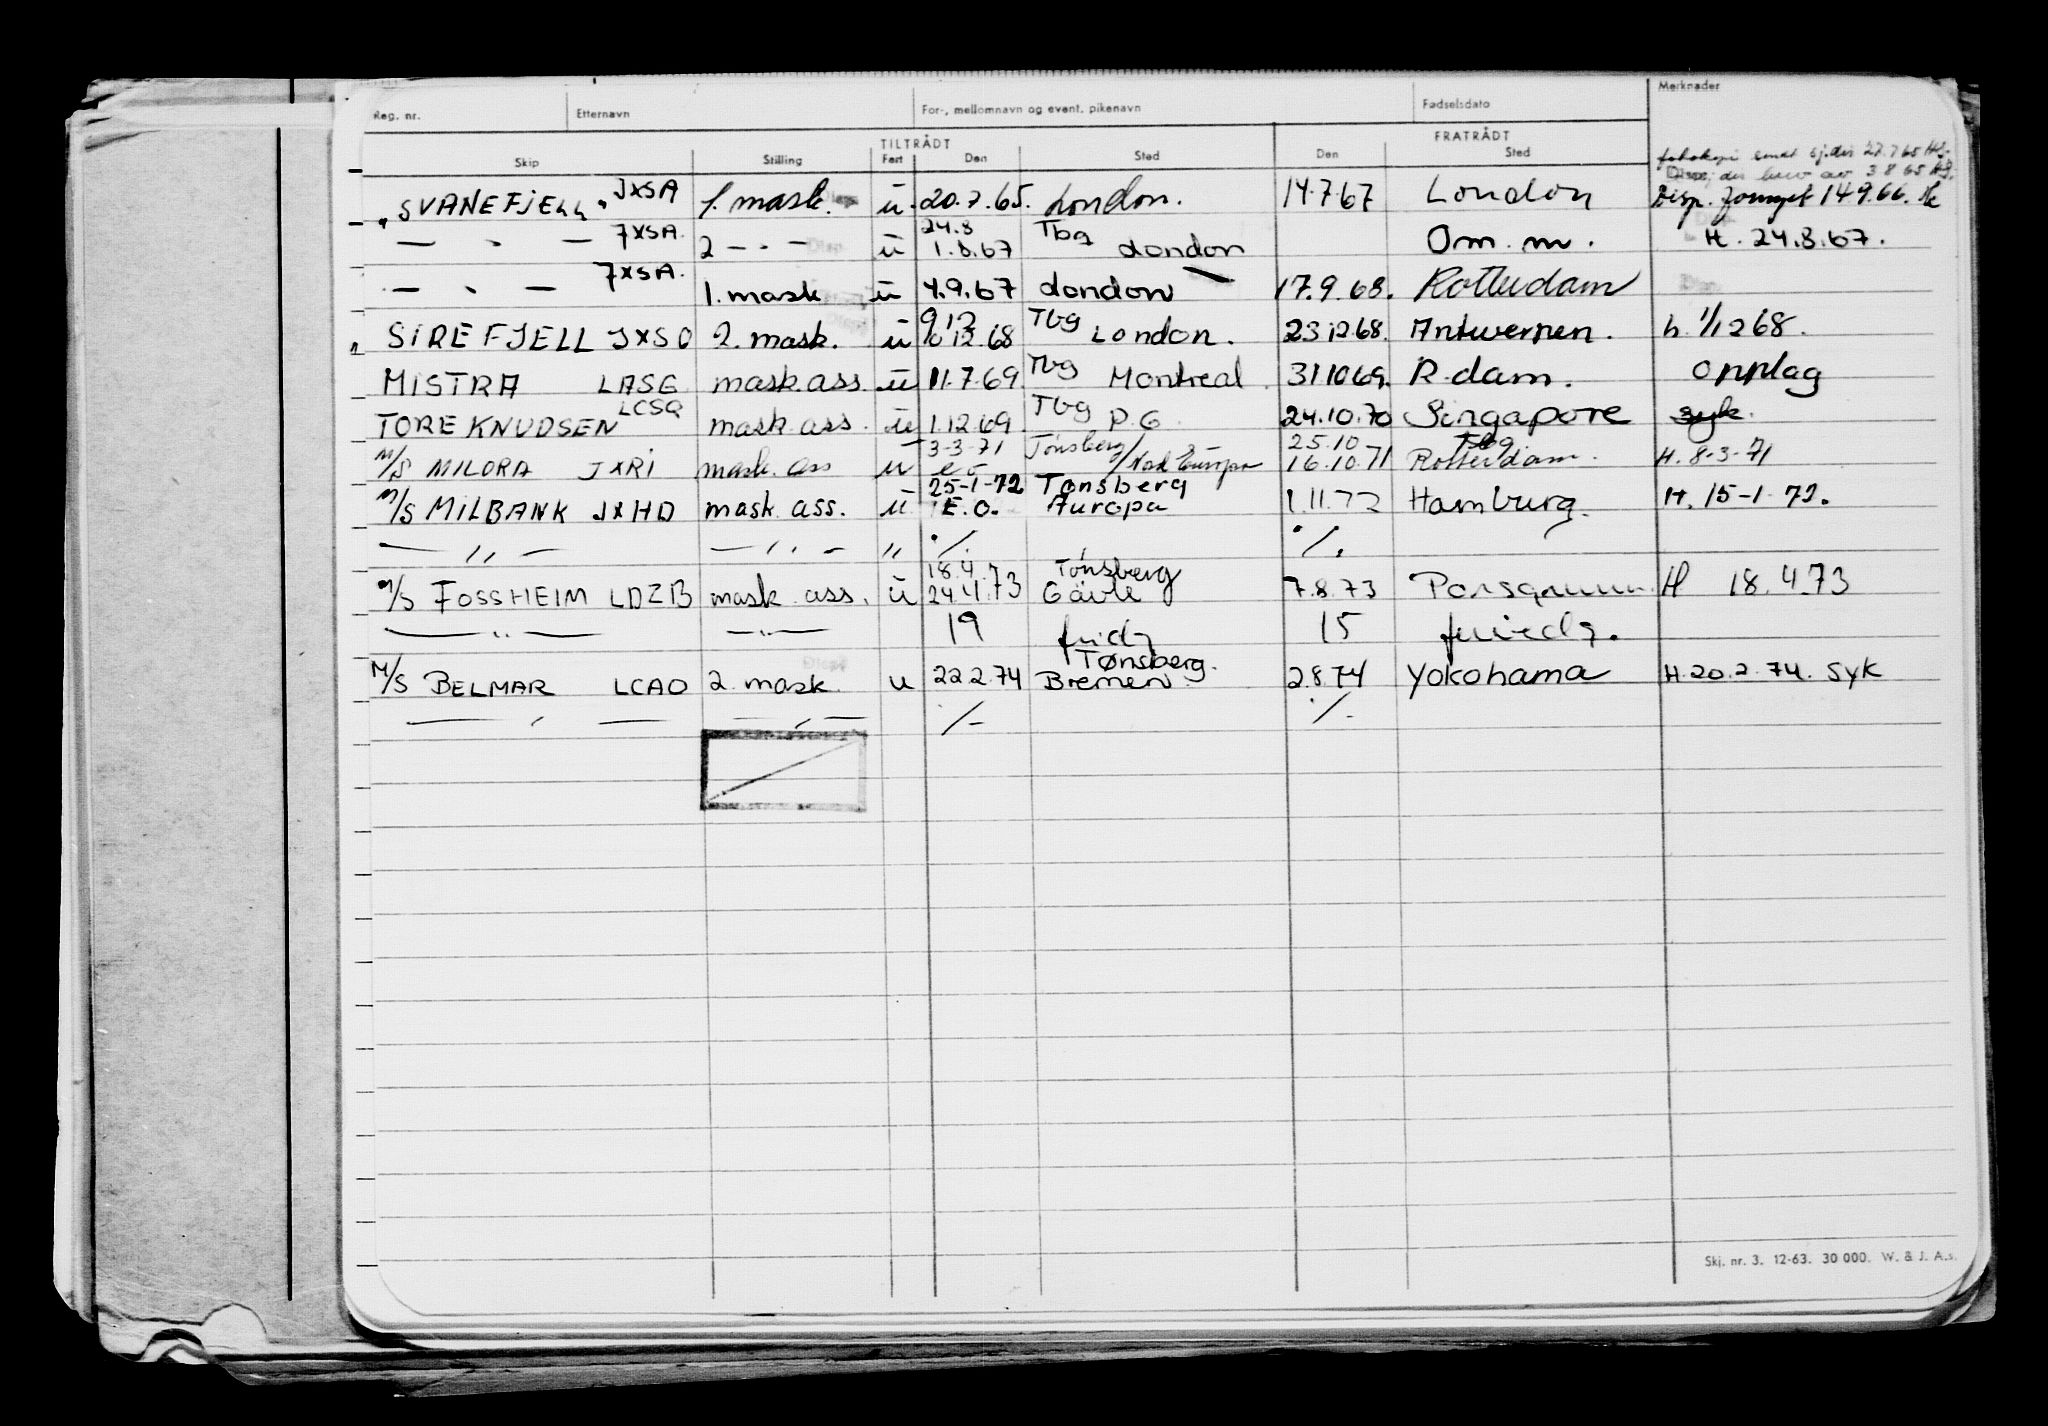 Reg. nr. Etternavn For-, mellomnavn og event. pikenavn Fødselsdato Merknader
TILTRÅDT FRATRÅDT
Skip Stilling Fart Den Sted Den Sted
fotokopi sendt sj.dir 27.7.65
3 8 65
"SVANEFJELL" JXSA 1. mask. u. 20.7.65. London. 14.7.67 London Disp. fornyet 14.9.66.
24.8 Tbg
— " — JXSA. 2 — " — u 1.8.67 London Om. m. H. 24.8.67.
— " — JXSA. 1. mask u 4.9.67 London 17.9.68. Rotterdam
9.12 Tbg
" SIREFJELL JXSO 2. mask. u 10.12.68 London. 23.12.68. Antwerpen. h. 1/12 68.
MISTRA LASG mask.ass. u 11.7.69. Tbg Montreal. 31.10.69. R.dam. Opplag
TORE KNUDSEN LCSQ mask ass. u 1.12.69. Tbg P.G. 24.10.70 Singapore syk.
3-3-71 Tønsberg/ 25.10 Tbg
M/S MILORA JXRI mask. ass u e.o. Nord Europa 16.10.71 Rotterdam. H. 8-3-71
25-1-72 Tønsberg
M/S MILBANK JXHD mask. ass. u E.O. Europa 1.11.72 Hamburg. H. 15-1-72.
— " — — " — " ·/. ·/.
18.4. Tønsberg
M/S FOSSHEIM LDZB mask. ass. u 24.4.73 Gävle 7.8.73 Porsgrunn. H 18.4.73
— " — — " — 19 frid 15 fridg.
Tønsberg.
M/S BELMAR LCAO 2. mask. u 22.2.74 Bremen 2.8.74 Yokohama H. 20.2.74. Syk
— " — — " — ·/- ·/-
Skj. nr. 3. 12-63. 30 000. W. & J. A.s.